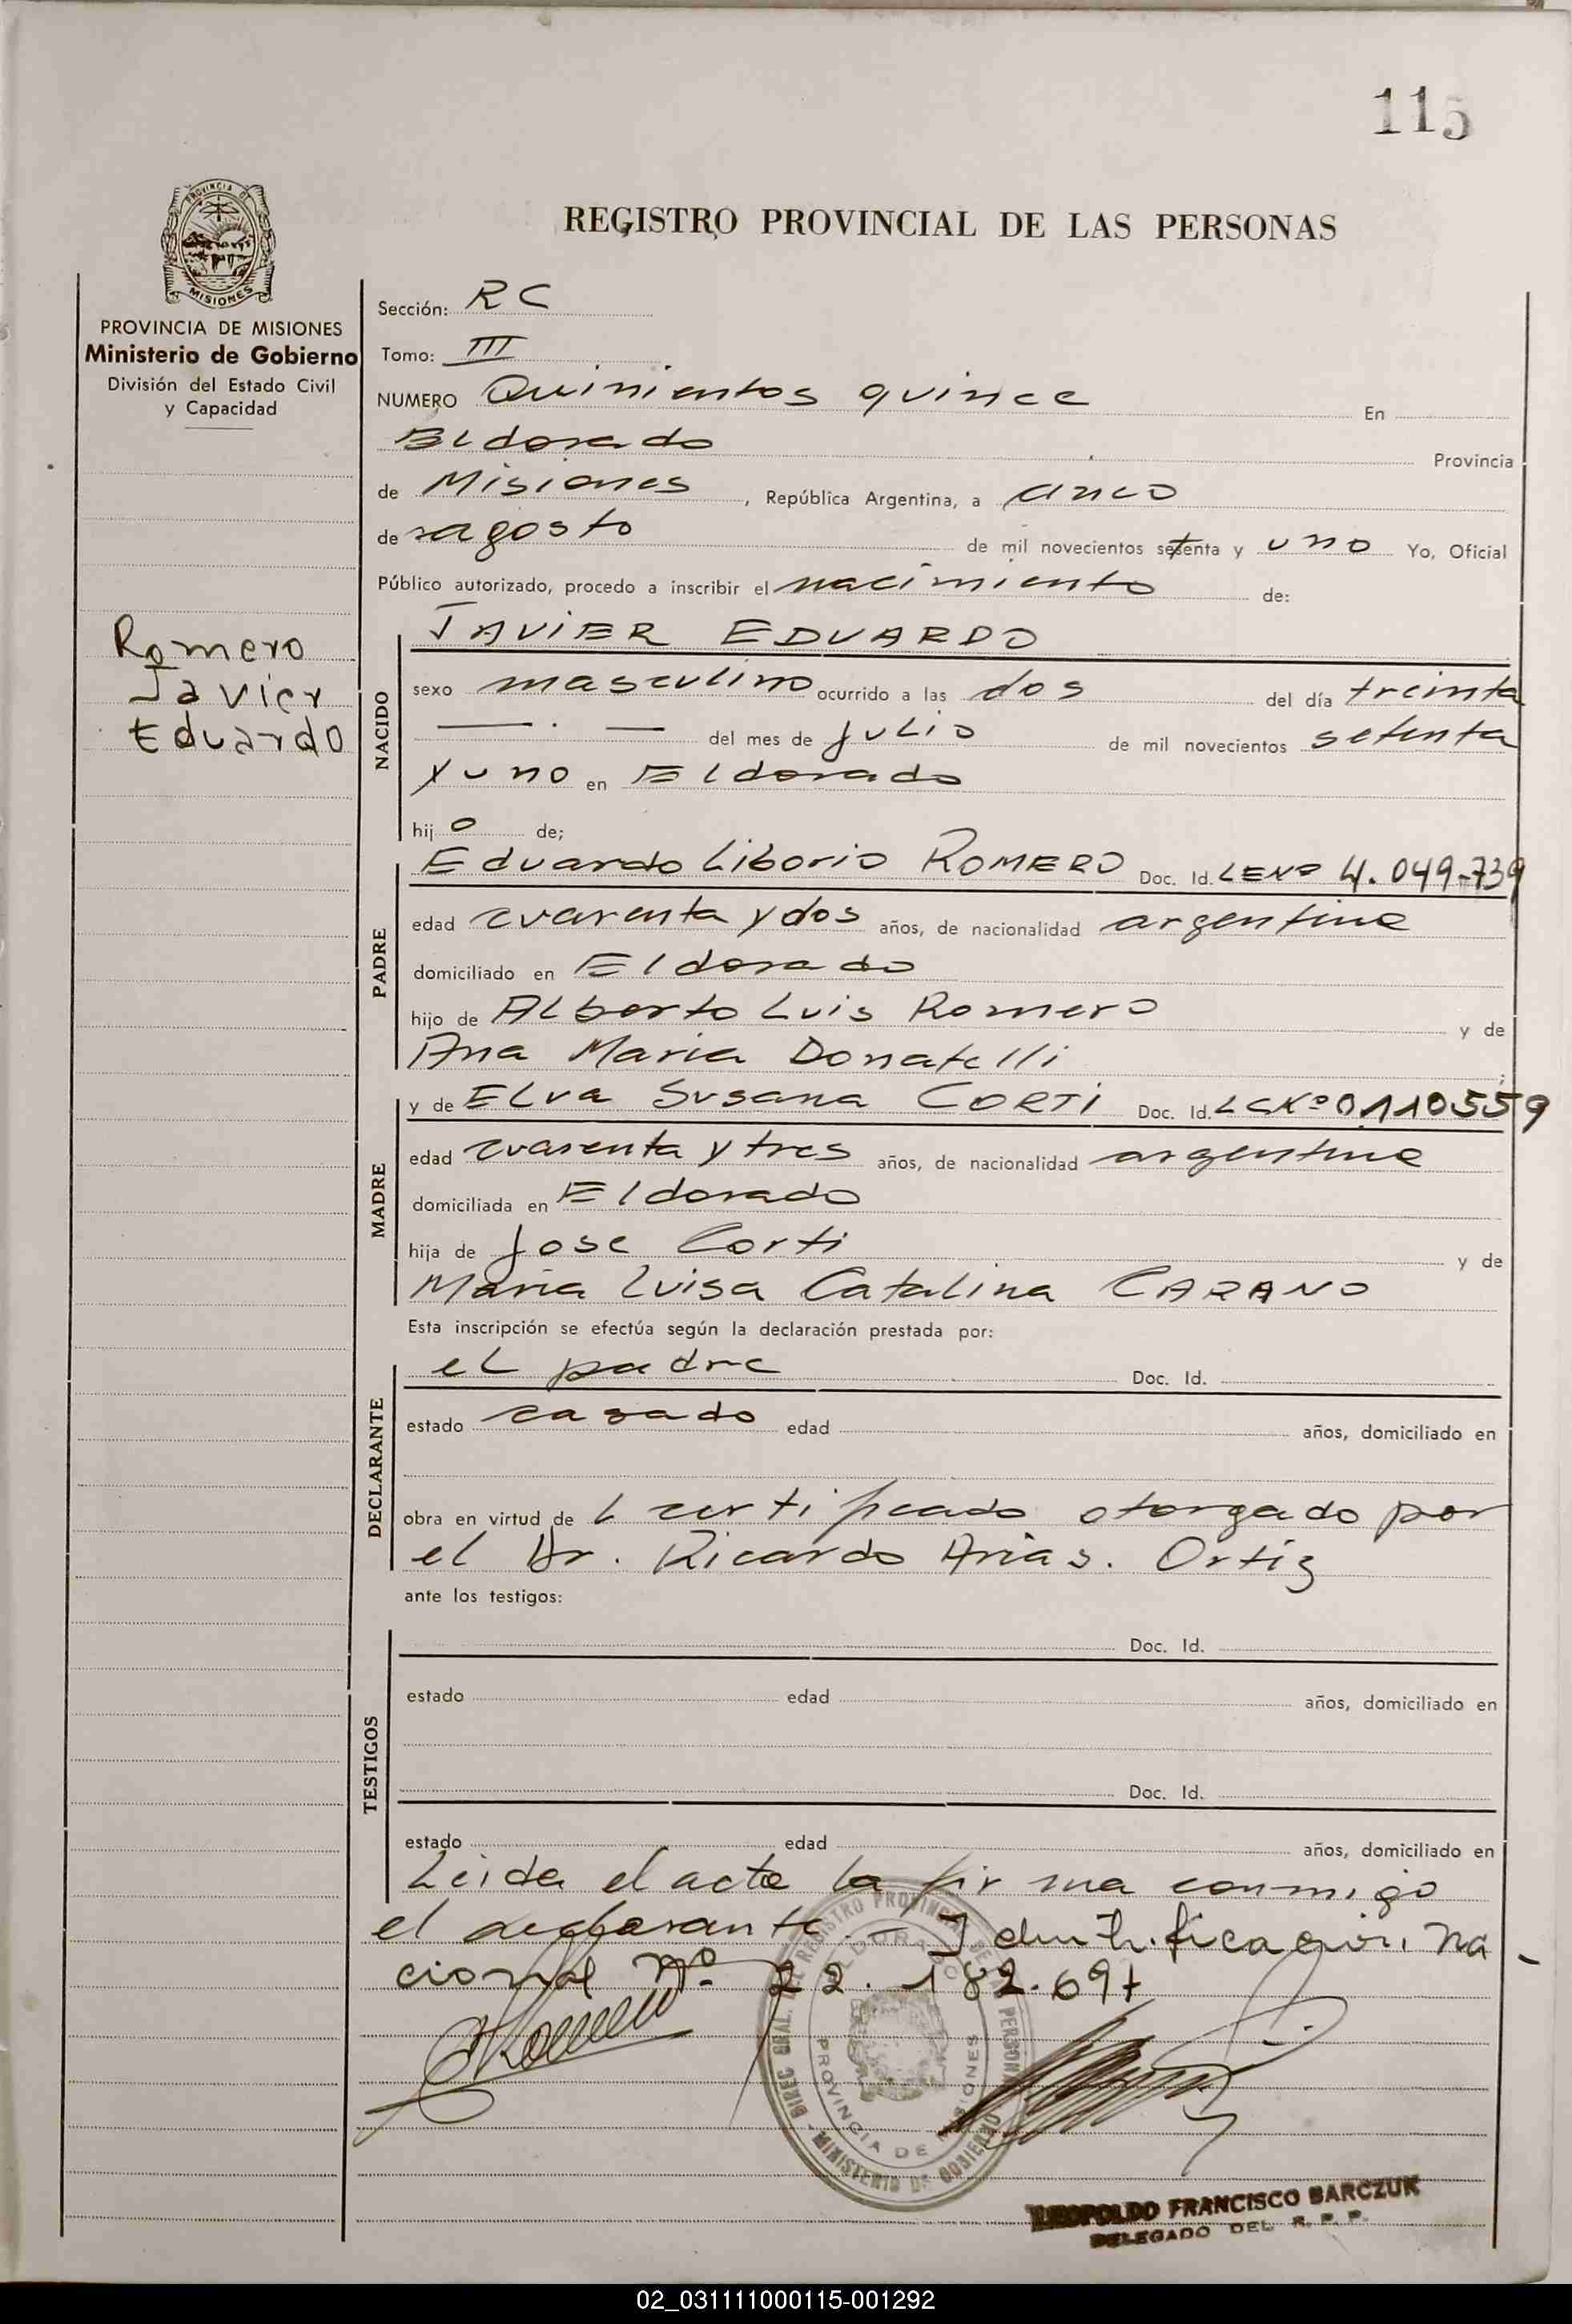 115
PROVINCIA DE MISIONES
REGISTRO PROVINCIAL DE LAS PERSONAS
PROVINCIA DE MISIONES
Ministerio de Gobierno
División del Estado Civil
y Capacidad
Romero
Javier
Eduardo
Sección: RC
Tomo: III
NUMERO Quinientos quince En
Eldorado Provincia
de Misiones, República Argentina, a cinco
de agosto de mil novecientos setenta y uno Yo, Oficial
Público autorizado, procedo a inscribir el nacimiento de:
NACIDO
JAVIER EDUARDO
sexo masculino ocurrido a las dos del día treinta
— . — del mes de julio de mil novecientos setenta
y uno en Eldorado
hijo de;
PADRE
Eduardo Liborio ROMERO Doc. Id. LENº 4.049-739
edad cuarenta y dos años, de nacionalidad argentina
domiciliado en Eldorado
hijo de Alberto Luis Romero y de
Ana Maria Donatelli ;
MADRE
y de Elva Susana CORTI Doc. Id. LCNº 0110559
edad cuarenta y tres años, de nacionalidad argentina
domiciliada en Eldorado
hija de Jose Corti y de
Maria Luisa Catalina CARANO
Esta inscripción se efectúa según la declaración prestada por:
DECLARANTE
el padre Doc. Id.
estado casado edad años, domiciliado en
obra en virtud de l certificado otorgado por
el Dr. Ricardo Arias. Ortiz
ante los testigos:
TESTIGOS
Doc. Id.
estado edad años, domiciliado en
Doc. Id.
estado edad años, domiciliado en
Leida el acta la firma conmigo
el declarante. — Identificacion Na -
cional Nº 22.182.697
DIREC. GRAL. DEL REGISTRO PROVINCIAL DE PERSONAS
MINISTERIO DE GOBIERNO
ELDORADO
PROVINCIA DE MISIONES
LEOPOLDO FRANCISCO BARCZUK
DELEGADO DEL R. P. P.
02_031111000115-001292